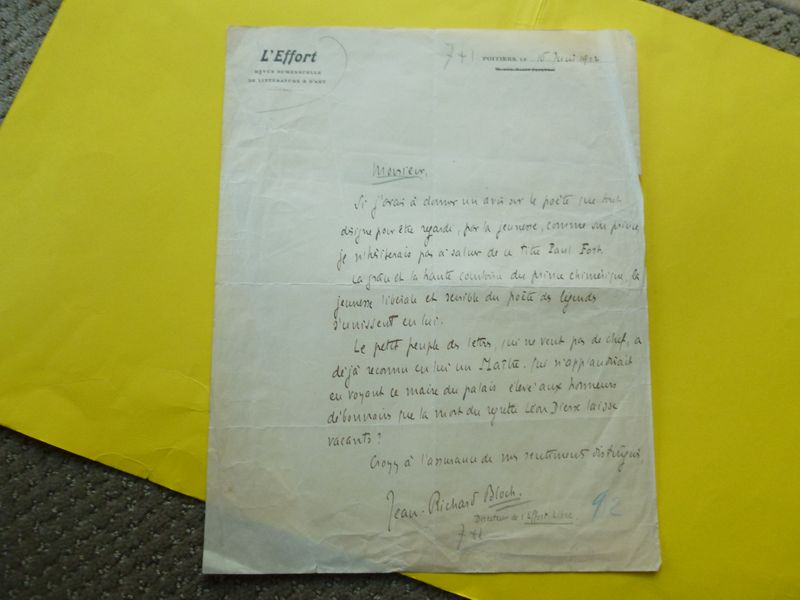 L'Effort
REVUE BI-MENSUELLE
DE LITTÉRATURE & D'ART
7+1
POITIERS, LE 15 Juin 1912
Monsieur,
Si j'avais à donner un avis sur le poète que tout
désigne pour être regardé, par la jeunesse, comme son prince,
je n'hésiterais pas à saluer de ce titre Paul Fort.
La grâce et la haute courtoisie du prince chimérique, la
jeunesse libérale et sensible du poète des légendes
s'unissent en lui.
Le petit peuple des lettres, qui ne veut pas de chef, a
déjà reconnu en lui un Maître. Qui n'applaudirait
en voyant ce maire du palais élevé aux honneurs
débonnaires que la mort du regretté Léon Dierx laisse
vacants ?
Croyez à l'assurance de mes sentiments distingués
Jean-Richard Bloch.
Directeur de l'Effort Libre
92
7+1